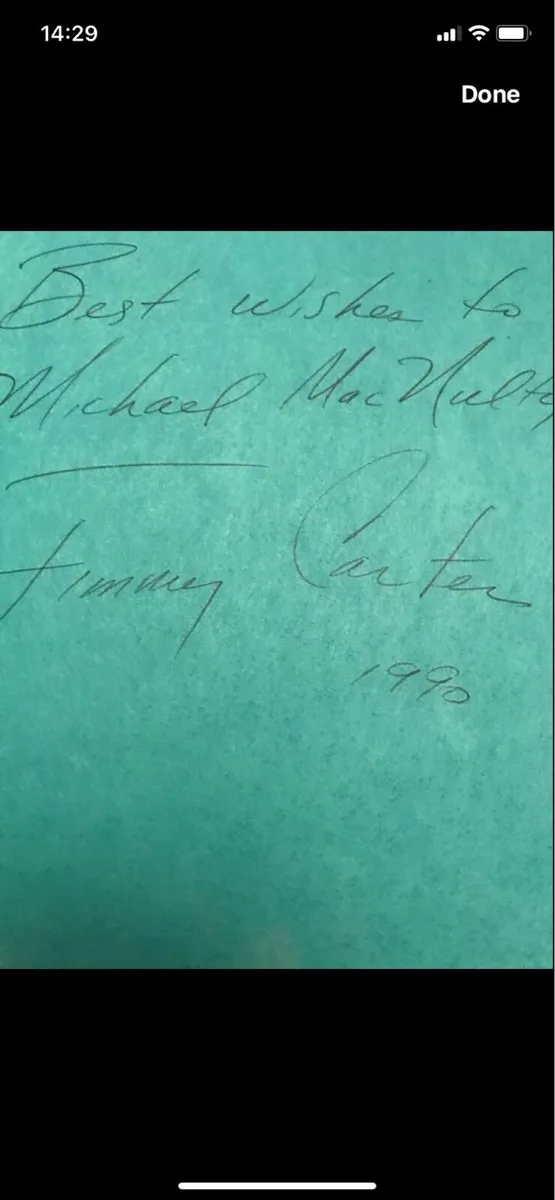 14:29
Done
Best wishes to
Michael MacNulty
Jimmy Carter
1990